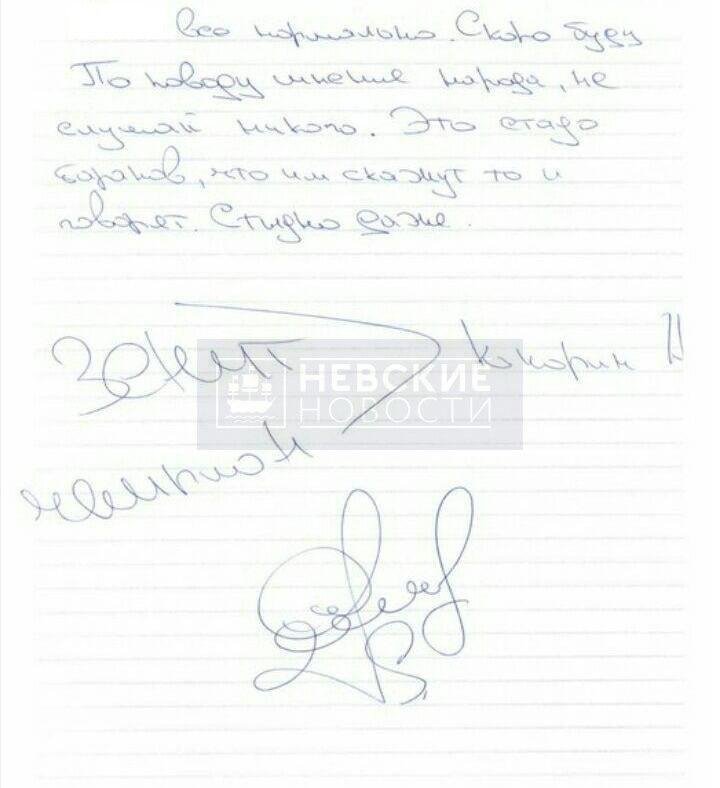 все нормально. Скоро буду
По поводу мнение народа, не
слушай никого. Это стадо
баранов, что им скажут то и
говорят. Стыдно даже.
Зенит
Кокорин 11
НЕВСКИЕ
НОВОСТИ
чемпион